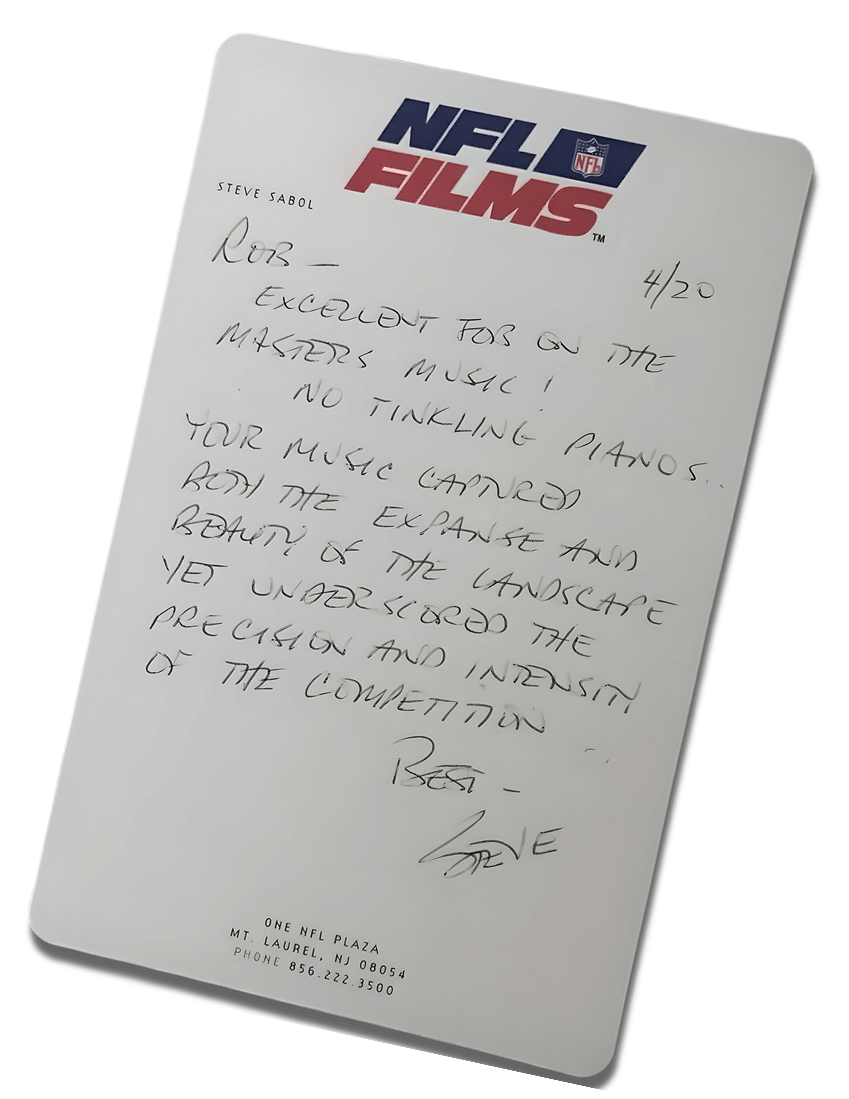 NFL
NFL
FILMS™
STEVE SABOL
ROB —
4/20
EXCELLENT FOB ON THE
MASTERS MUSIC!
NO TINKLING PIANOS..
YOUR MUSIC CAPTURED
BOTH THE EXPANSE AND
BEAUTY OF THE LANDSCAPE
YET UNDERSCORED THE
PRECISION AND INTENSITY
OF THE COMPETITION
BEST —
STEVE
ONE NFL PLAZA
MT. LAUREL, NJ 08054
PHONE 856.222.3500